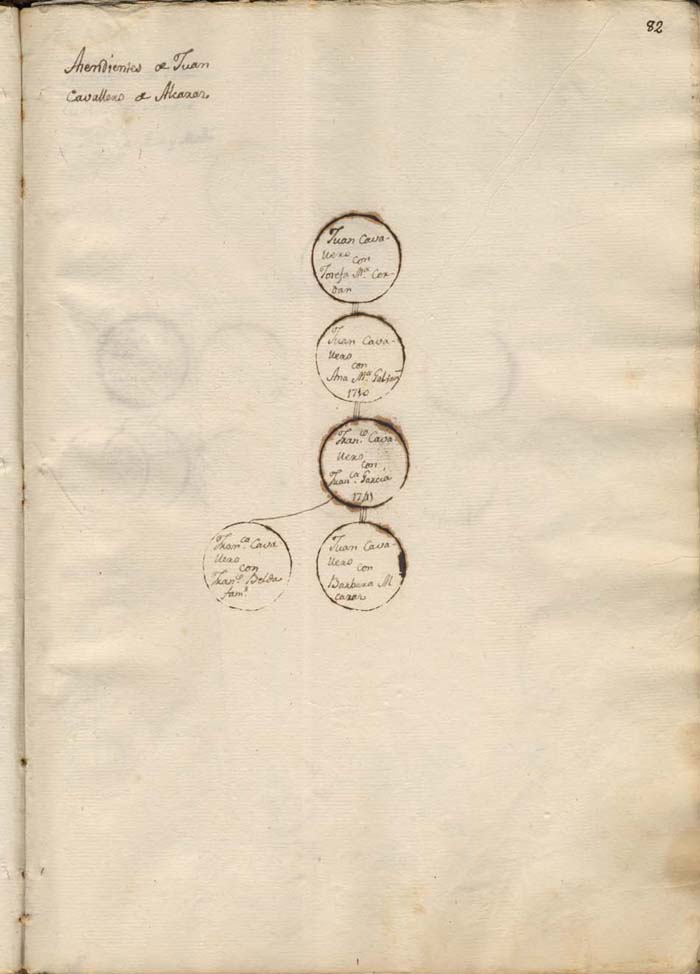 82
Asendientes de Juan
Cavallero de Alcaraz
Juan Cava-
llero
con
Josefa Mª Cer-
dan
Juan Cava-
llero
con
Ana Mª
1710
Franco. Cava-
llero
con
Juanca. Garcia
1741
Franca. Cava
llero
con
Franco. Belda
famr.
Juan Cava-
llero
con
Barbara Al
caraz